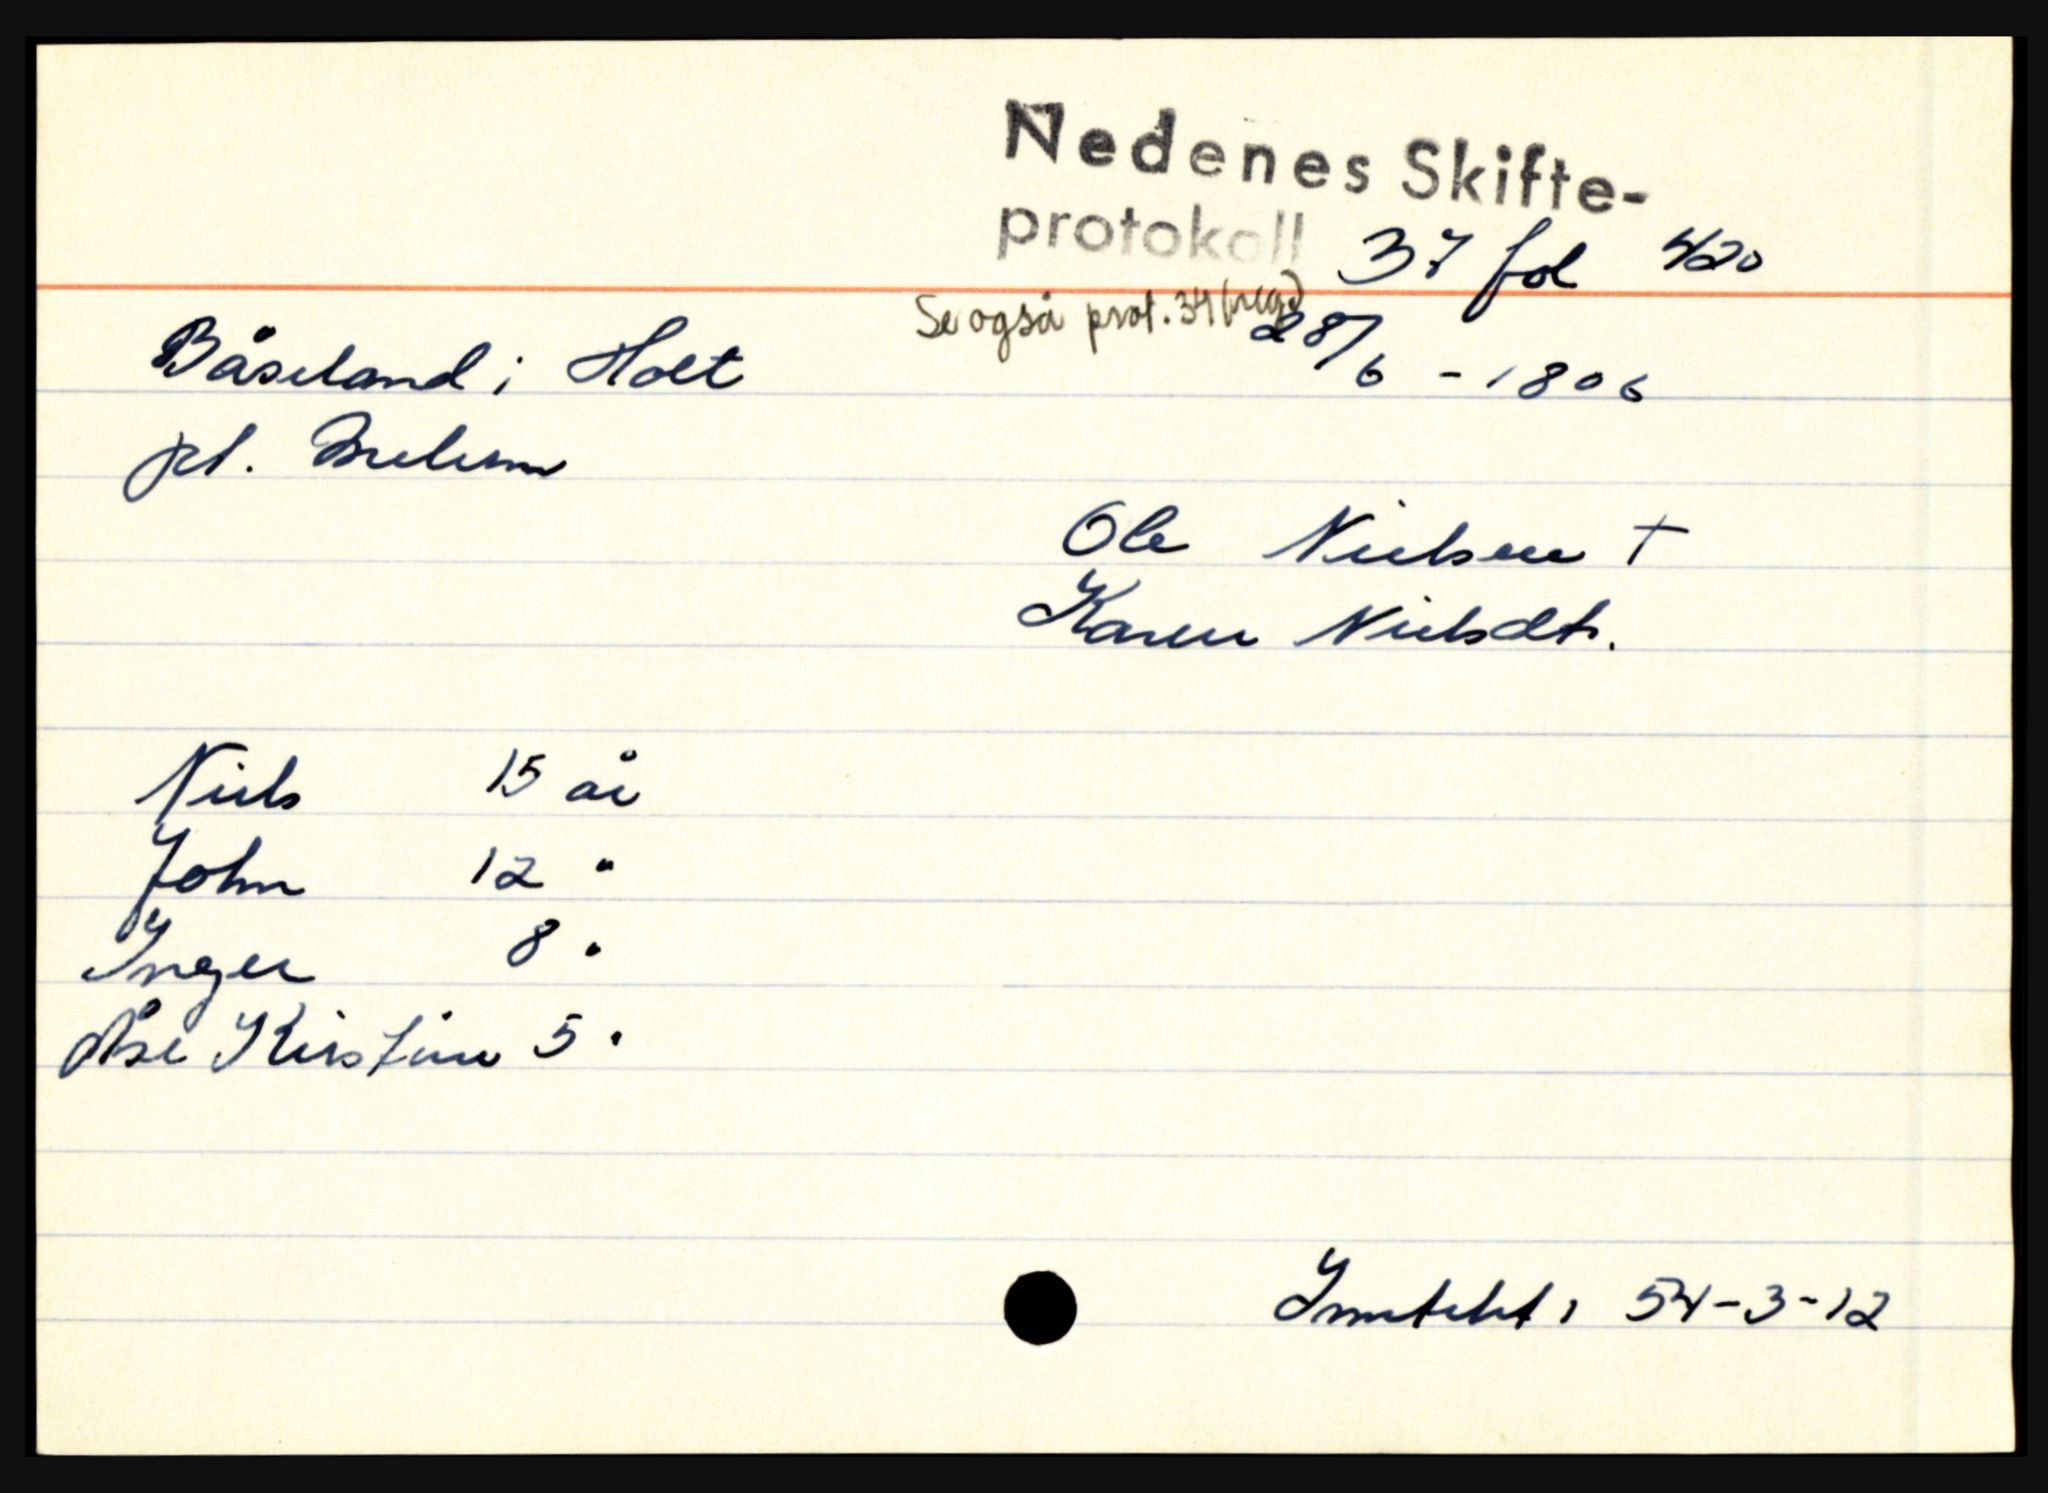 Nedenes Skifte-
protokoll 37 fol 420
Se også prot. 34 (reg.)
28/6 - 1806
Båseland i Holt
pl.
Ole Nielsen †
Karen Nielsdt.
Niels 15 år
John 12 "
Inger 8 "
Åse Kirstine 5 "
Inntekt: 54-3-12